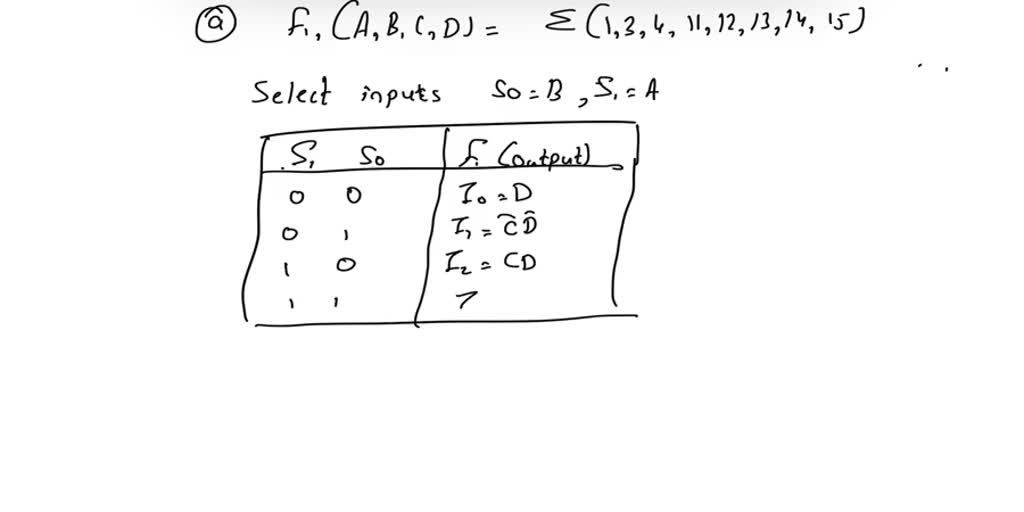 (a) F₁, (A, B, C, D) = Σ (1, 3, 4, 11, 12, 13, 14, 15)
Select inputs S0 = B, S₁ = A
S₁ S0 F₁ (output)
0 0 I₀ = D
0 1 I₁ = C̅D̅
1 0 I₂ = CD
1 1